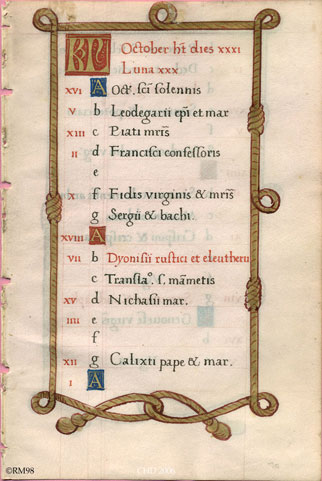 KL October ht̄ dies xxxi
Luna xxx
xvi A Oct̄. sc̄i solennis
v b Leodegarii ep̄i et mar
xiii c Piati mr̄is
ii d Francisci confessoris
e
x f Fidis virginis & mr̄is
g Sergii & bachi
xviii A
vii b Dyonisii rustici et eleutherii
c Transla°. s. mametis
xv d Nichasii mar.
iiii e
f
xii g Calixti pape & mar.
i A
©RM98